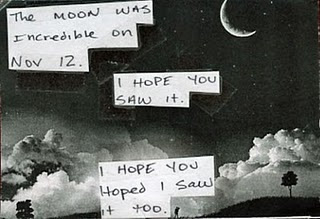 The MOON WAS
Incredible on
Nov 12.
I HOPE YOU
SAW IT.
I HOPE YOU
Hoped I Saw
it too.